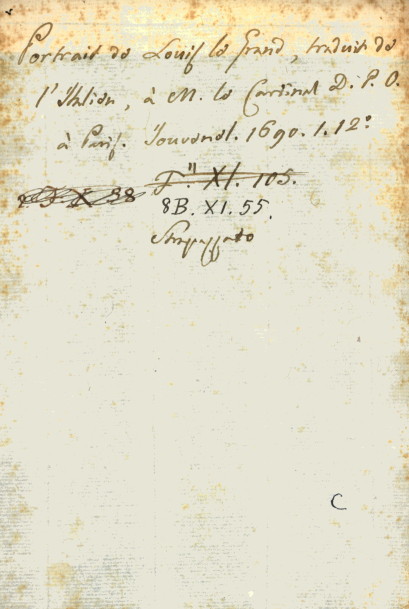 Portrait de Louis le Grand, traduit de
l'Italien, à M. le Cardinal D. P. O.
à Paris. Jouvenel. 1690. 1. 12°
F." XI. 105.
D X 38
8B. XI. 55.
Strapazzato
C